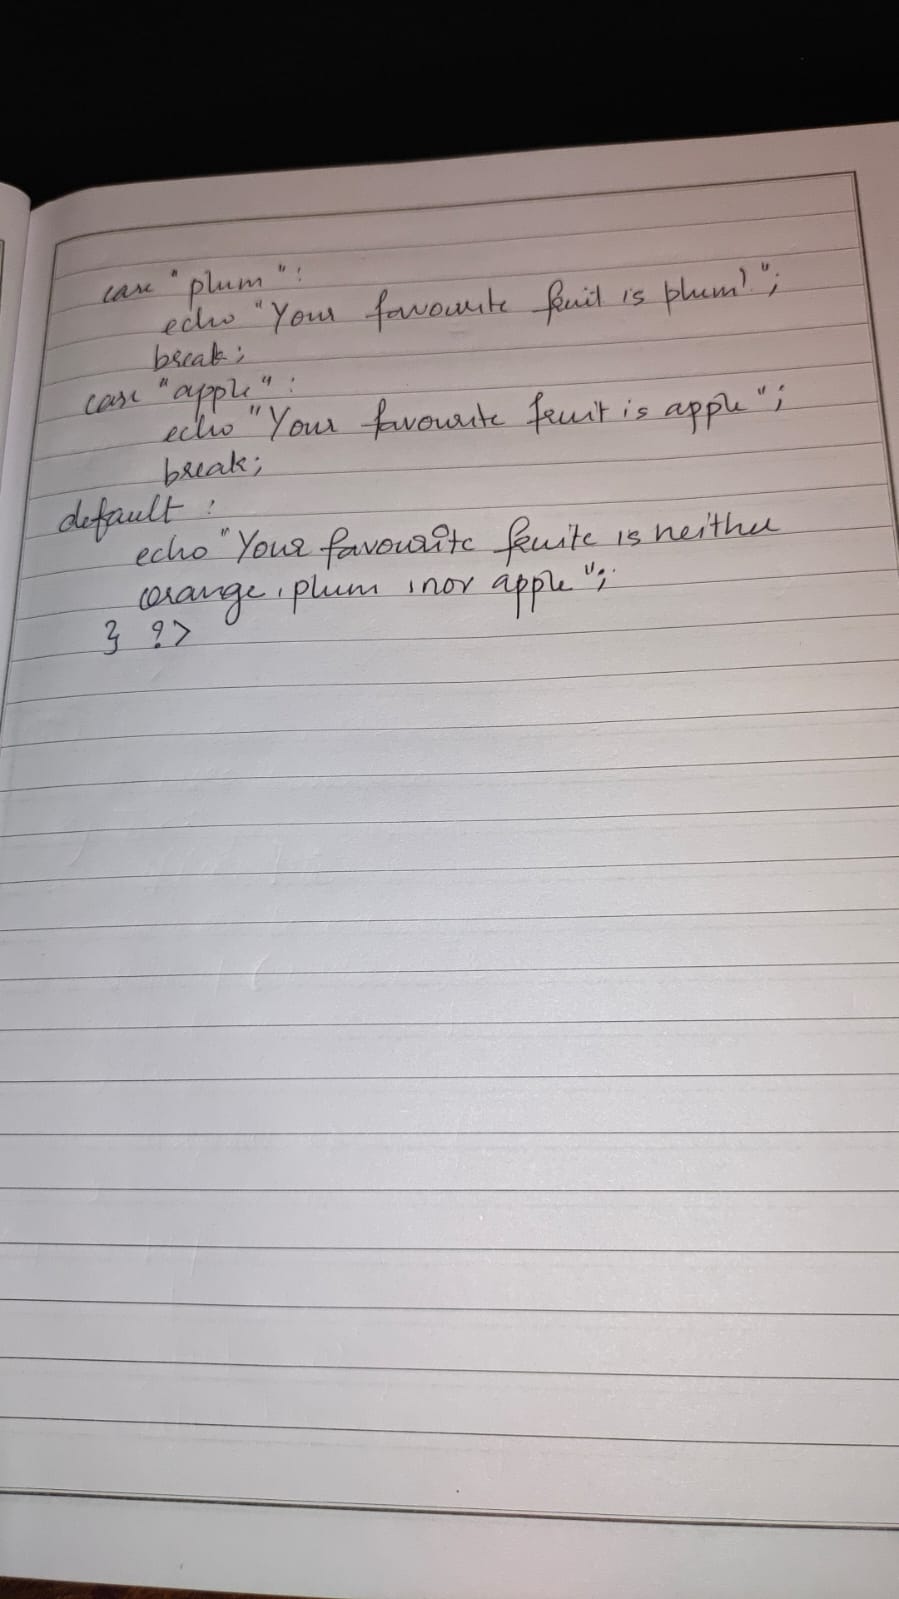 case "plum":
echo "Your favourite fruit is plum!";
break;
case "apple":
echo "Your favourite fruit is apple";
break;
default:
echo "Your favourite fruite is neither
orange, plum, nor apple";
} ?>